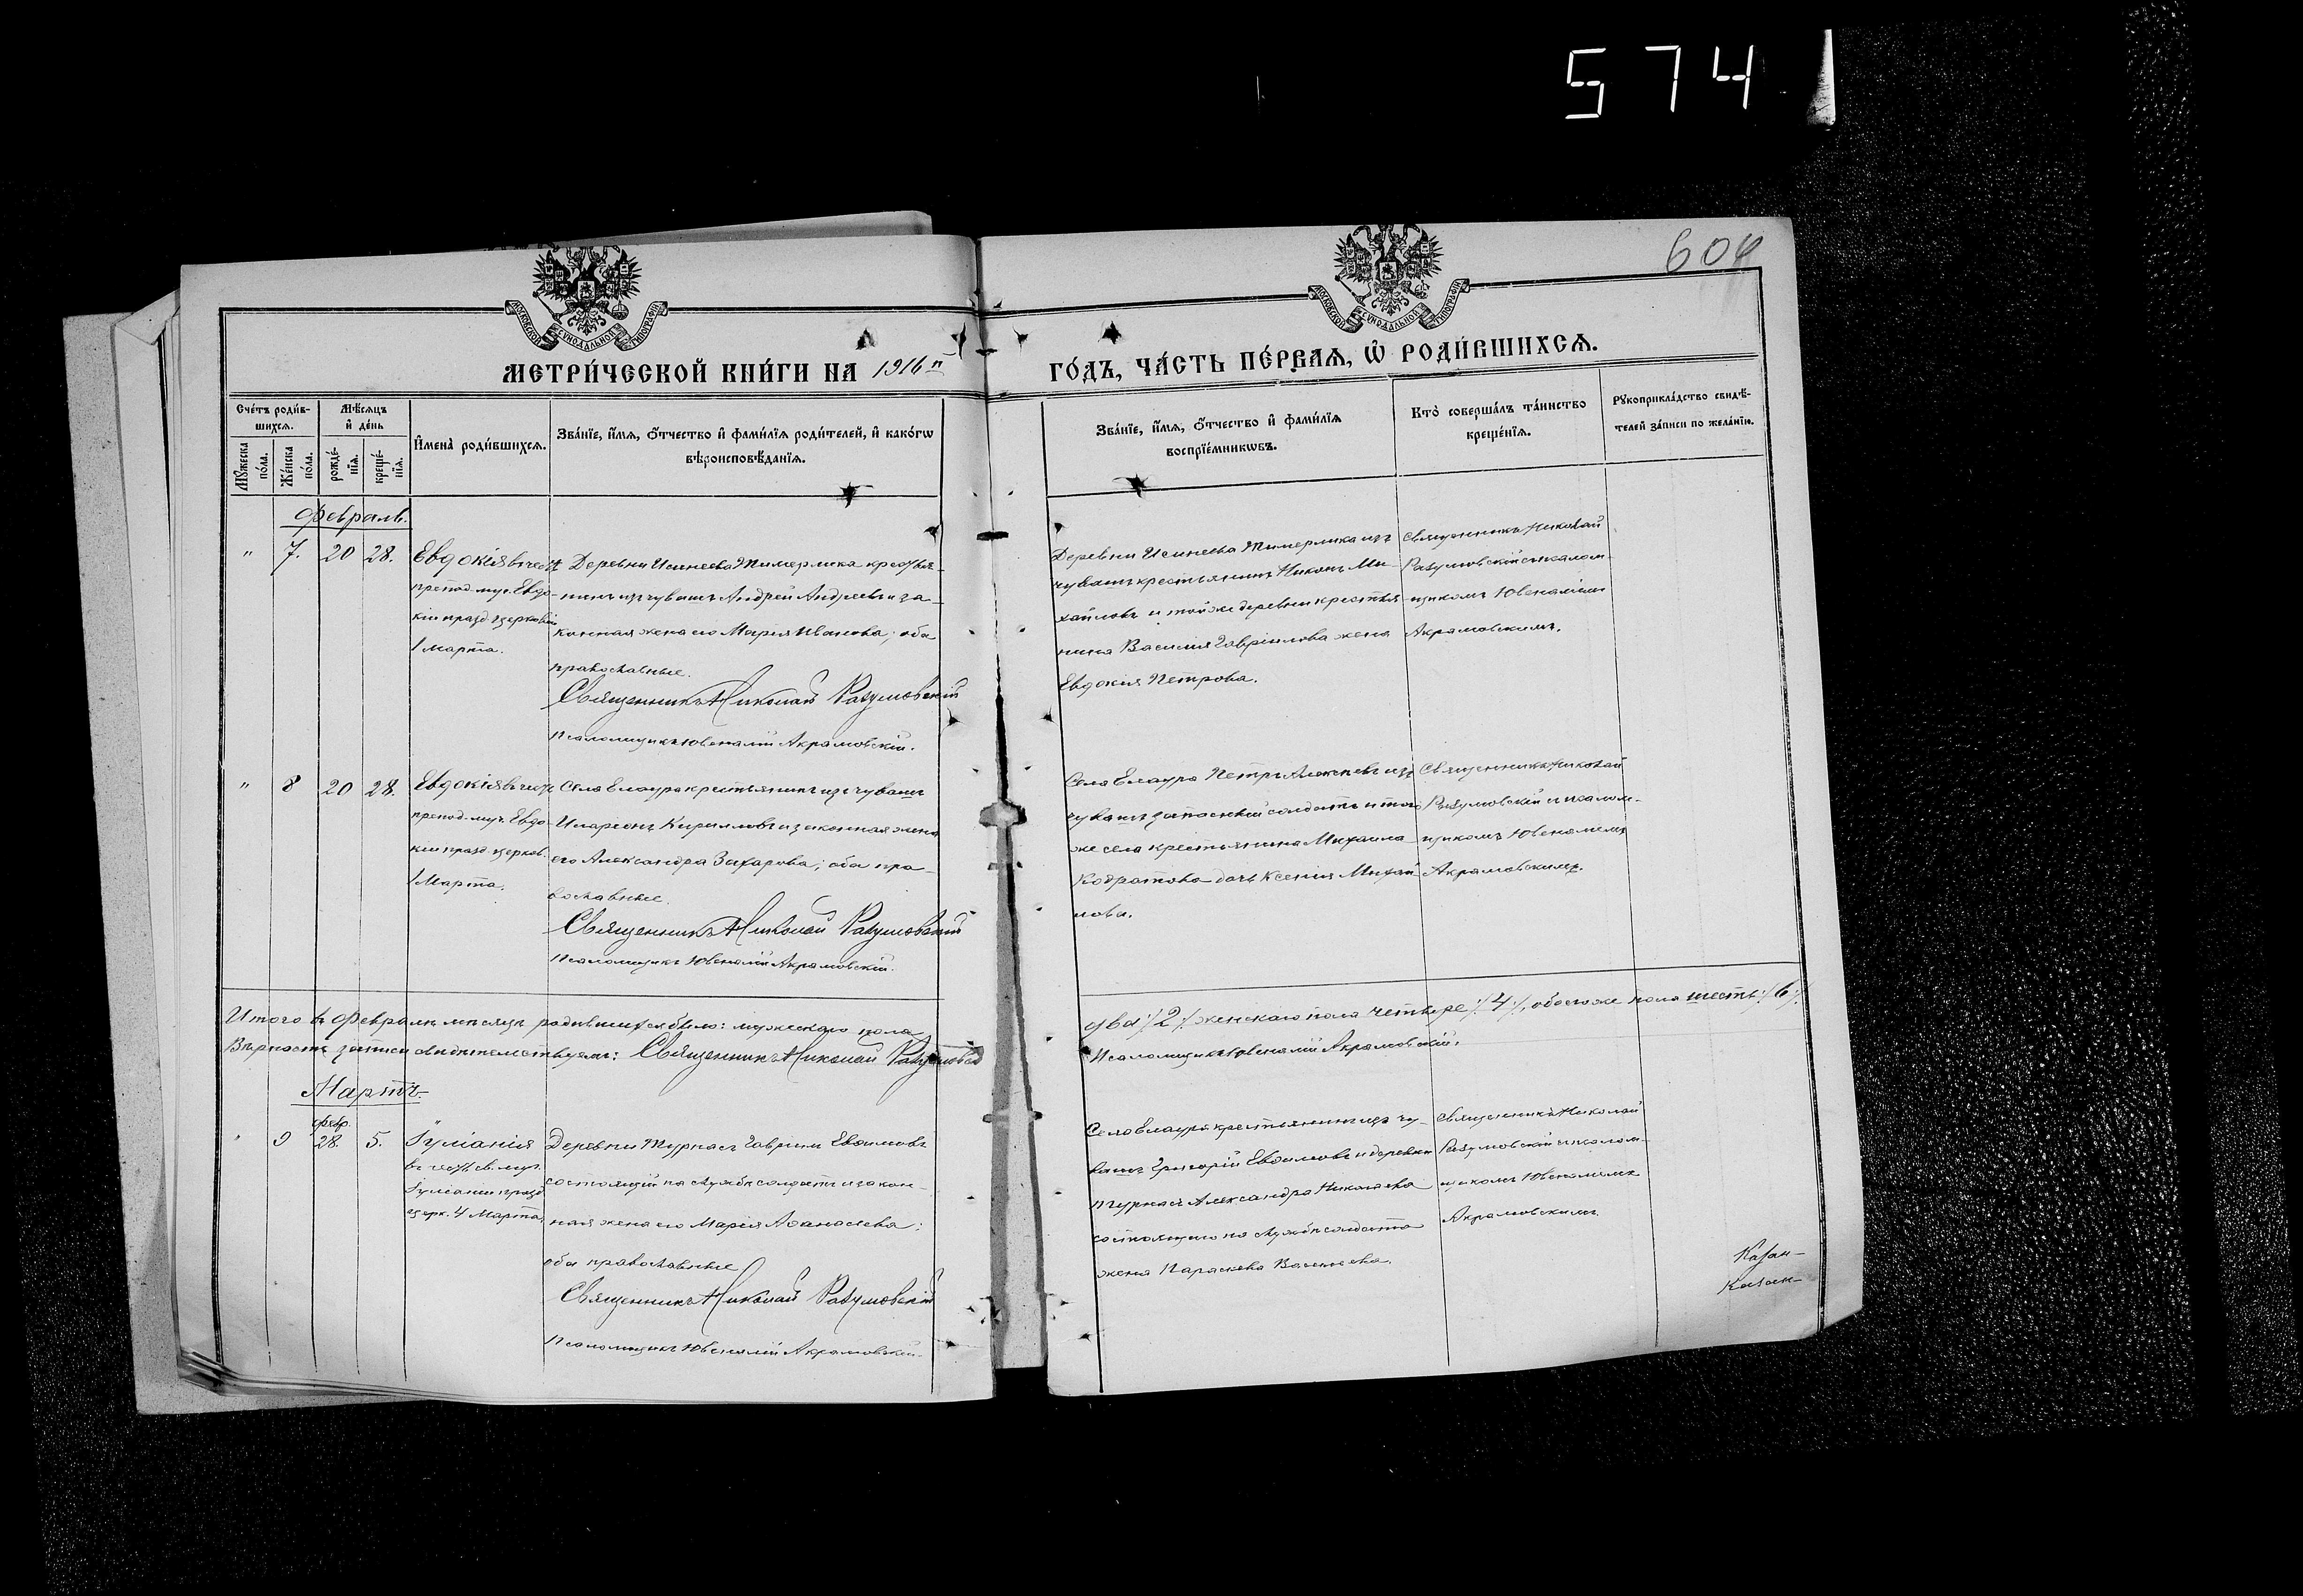 574
604
МОСКОВСКОЙ СѴНОДАЛЬНОЙ ТИПОГРАФІИ
МОСКОВСКОЙ СѴНОДАЛЬНОЙ ТИПОГРАФІИ
МЕТРИ́ЧЕСКОЙ КНИ́ГИ НА 1916 й ГО́ДЪ, ЧА́СТЬ ПЕ́РВАѦ, Ѡ҆ РОДИ́ВШИХСѦ.
Сче́тъ роди́в-
шихсѧ.
Мѣ́сѧцъ
и҆ де́нь
Мꙋ́жеска
по́ла.
Же́нска
по́ла.
рожде́-
нїѧ.
креще́-
нїѧ.
И҆мена̀ роди́вшихсѧ.
Зва́нїе, и҆́мѧ, ѻ҆́тчество и҆ фами́лїѧ роди́телей, и҆ како́гѡ
вѣроисповѣ́данїѧ.
Зва́нїе, и҆́мѧ, ѻ҆́тчество и҆ фами́лїѧ
воспрїе́мникѡвъ.
Кто̀ соверша́лъ та́инство
креще́нїѧ.
Рꙋкоприкла́дство свидѣ́-
телей за́писи по жела́нїю.
Февраль.
" 7. 20 28.
Евдокія въ честь
препод.-муч. Евдо-
кіи празд. церковію
1 Марта.
Деревни Исинеева Тимерлика крестья-
нинъ изъ чувашъ Андрей Андреевъ и за-
конная жена его Марія Иванова; оба
православные.
Священникъ Николай Разумовскій
Псаломщикъ Ювеналій Акрамовскій.
Деревни Исинеева Тимерлика изъ
чувашъ крестьянинъ Никонъ Ми-
хайловъ и той же деревни крестья-
нина Василія Гавріилова жена
Евдокія Петрова.
Священникъ Николай
Разумовскій съ псалом-
щикомъ Ювеналіемъ
Акрамовскимъ.
" 8 20 28.
Евдокія въ честь
препод.-муч. Евдо-
кіи празд. церков.
1 Марта.
Села Елаура крестьянинъ изъ чувашъ
Иларіонъ Кирилловъ и законная жена
его Александра Захарова; оба пра-
вославные.
Священникъ Николай Разумовскій
Псаломщикъ Ювеналій Акрамовскій.
Села Елаура Петръ Алексѣевъ изъ
чувашъ запасный солдатъ и того
же села крестьянина Михаила
Кодратова дочь Ксенія Михай-
лова.
Священникъ Николай
Разумовскій съ псалом-
щикомъ Ювеналіемъ
Акрамовскимъ.
Итого въ Февралѣ мѣсяцѣ родившихся было: мужескаго пола два /2/. женскаго пола четыре /4/, обоего же пола шесть /6/.
Вѣрность записи свидѣтельствуемъ: Священникъ Николай Разумовскій
Псаломщикъ Ювеналій Акрамовскій.
Мартъ.
февр.
" 9 28. 5.
Іуліанія
въ честь св. муч.
Іуліаніи празд.
церк. 4 Марта.
Деревни Турнасъ Гавріилъ Евѳимовъ
состоящій на службѣ солдатъ и закон-
ная жена его Марія Аѳанасьева;
оба православные
Священникъ Николай Разумовскій
Псаломщикъ Ювеналій Акрамовскій.
Села Елаура крестьянинъ изъ чу-
вашъ Григорій Евѳимовъ и деревни
Турнасъ Александра Николаева
состоящаго на службѣ солдата
жена Параскева Васильева.
Священникъ Николай
Разумовскій съ псалом-
щикомъ Ювеналіемъ
Акрамовскимъ.
Казан-
Казан-